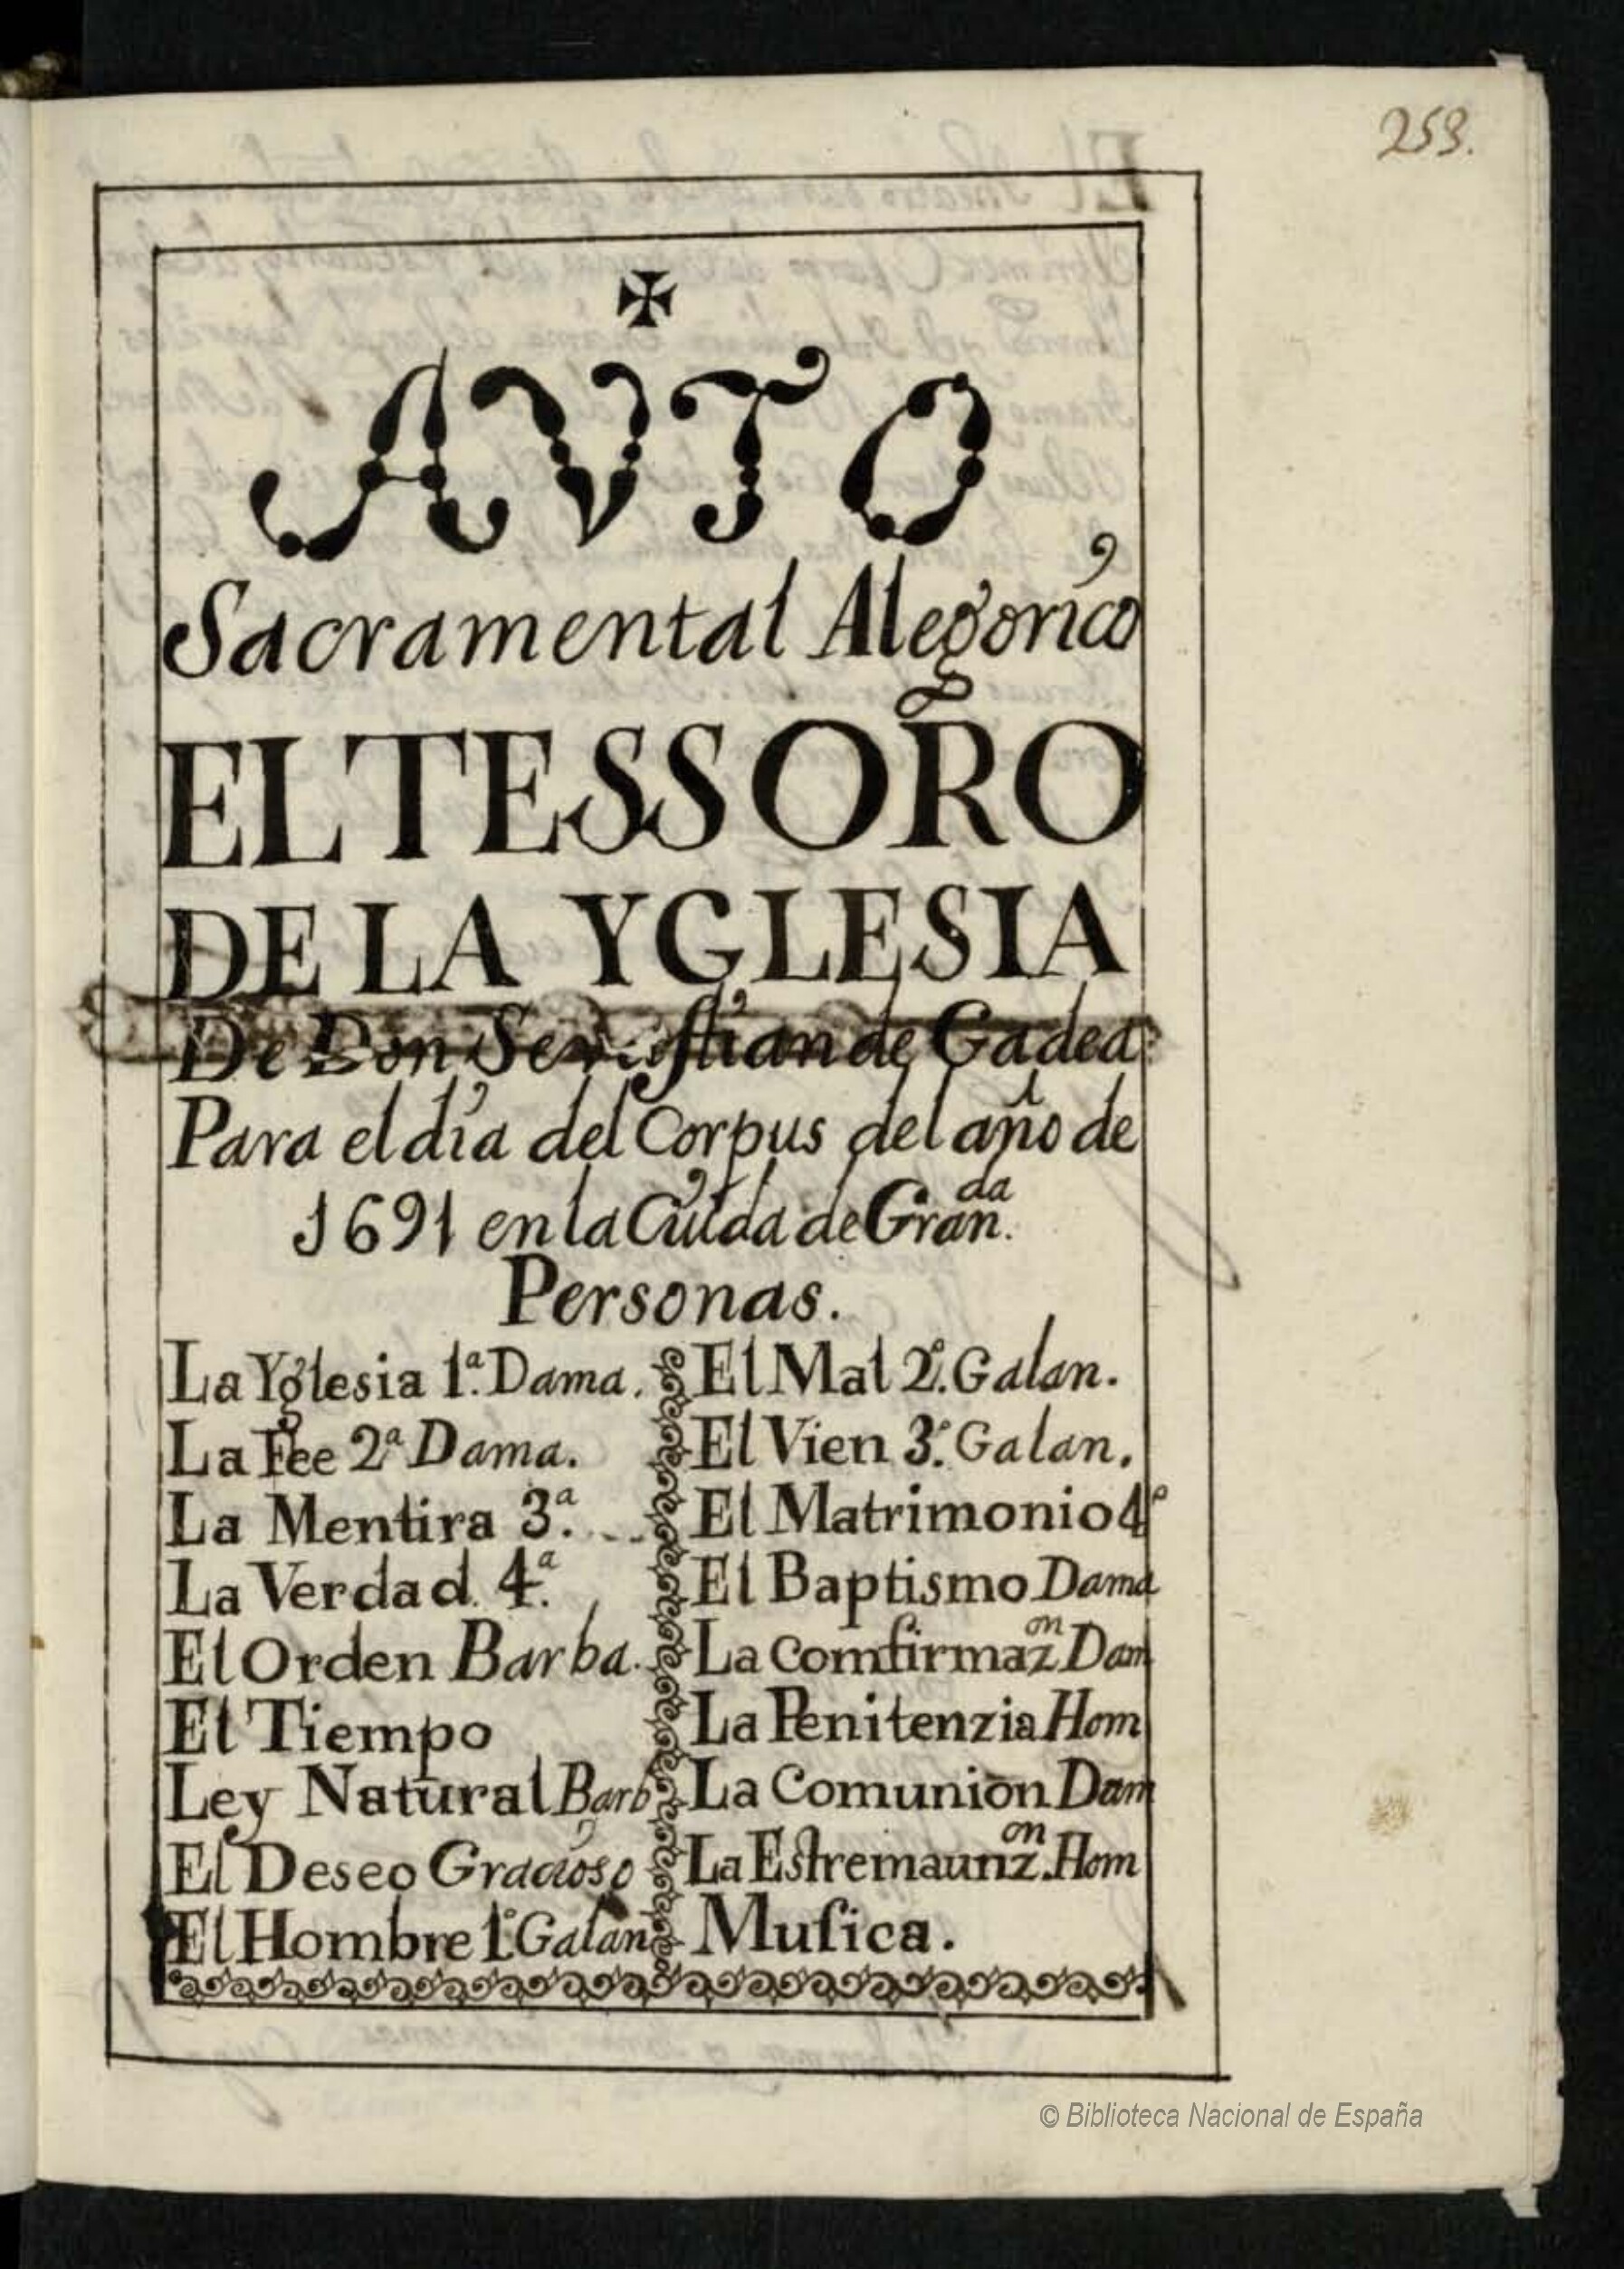 253.
AVTO
Sacramental Alegorico
EL TESSORO
DE LA YGLESIA
De Don Sevastian de Gadea
Para el dia del Corpus del año de
1691 en la Ciuda de Gran.da
Personas.
La Yglesia 1.ª Dama.
La Fee 2ª Dama.
La Mentira 3.ª
La Verdad. 4.ª
El Orden Barba.
El Tiempo
Ley Natural Barb
El Deseo Gracioso
El Hombre 1.º Galan
El Mal 2.º Galan.
El Vien 3.º Galan.
El Matrimonio 4º
El Baptismo Dama
La comfirmaz.on Dam
La Penitenzia Hom
La Comunion Dam
La Estremaunz.on Hom
Musica.
© Biblioteca Nacional de España